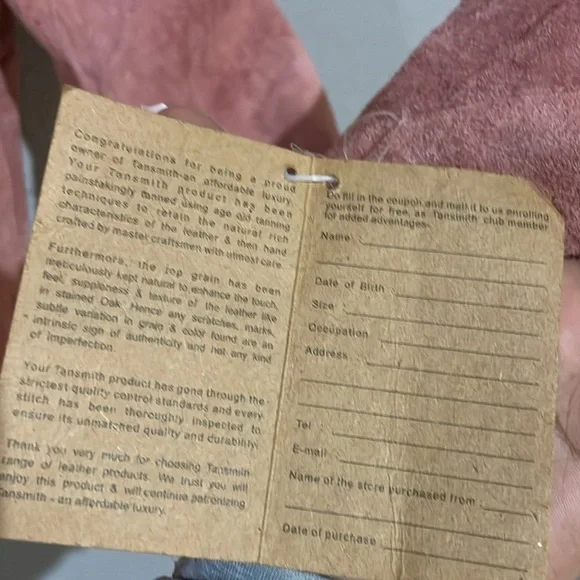 Congratulations for being a proud
owner of Tansmith-an affordable luxury.
Your Tansmith product has been
painstakingly tanned using age old tanning
techniques to retain the natural rich
characteristics of the leather & then hand
crafted by master craftsmen with utmost care.
Furthermore, the top grain has been
meticulously kept natural to enhance the touch,
feel, suppleness & texture of the leather like
in stained Oak. Hence any scratches, marks,
subtle variation in grain & color found are an
- intrinsic sign of authenticity and not any kind
of imperfection.
Your Tansmith product has gone through the
strictest quality control standards and every
stitch has been thoroughly inspected to
ensure its unmatched quality and durability.
Thank you very much for choosing Tansmith
range of leather products. We trust you will
enjoy this product & will continue patronizing
Tansmith - an affordable luxury.
Do fill in the coupon and mail it to us enrolling
yourself for free, as Tansmith club member
for added advantages-
Name :
Date of Birth :
Size :
Occupation
Address :
Tel :
E-mail :
Name of the store purchased from
Date of purchase